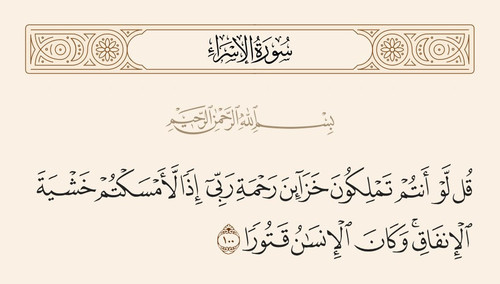 سُورَةُ الإِسْرَاءِ
بِسْمِ اللَّهِ الرَّحْمَٰنِ الرَّحِيمِ
قُل لَّوْ أَنتُمْ تَمْلِكُونَ خَزَآئِنَ رَحْمَةِ رَبِّىٓ إِذًا لَّأَمْسَكْتُمْ خَشْيَةَ
ٱلْإِنفَاقِ ۚ وَكَانَ ٱلْإِنسَٰنُ قَتُورًا ١٠٠